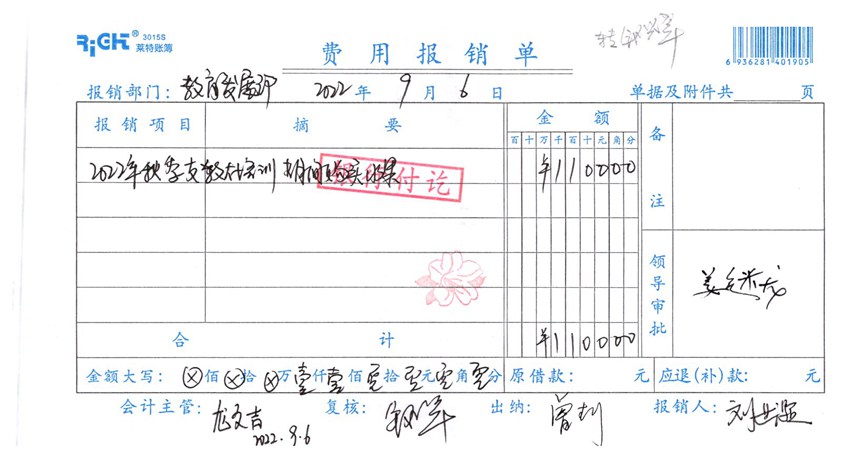 RiGHT 3015S 莱特账簿
费用报销单
6 936281 401905
报销部门: 教育发展部 2022 年 9 月 6 日 单据及附件共 页
报销项目 摘要 金额 备注
百十万千百十元角分
2022年秋季支教教材培训期间购买水果 ¥110000
银行付讫
领导审批
合计 ¥110000
金额大写: ⊗佰⊗拾⊗万壹仟壹佰零拾零元零角零分 原借款: 元 应退(补)款: 元
会计主管: 龙文吉 复核: 出纳: 报销人:
2022.9.6